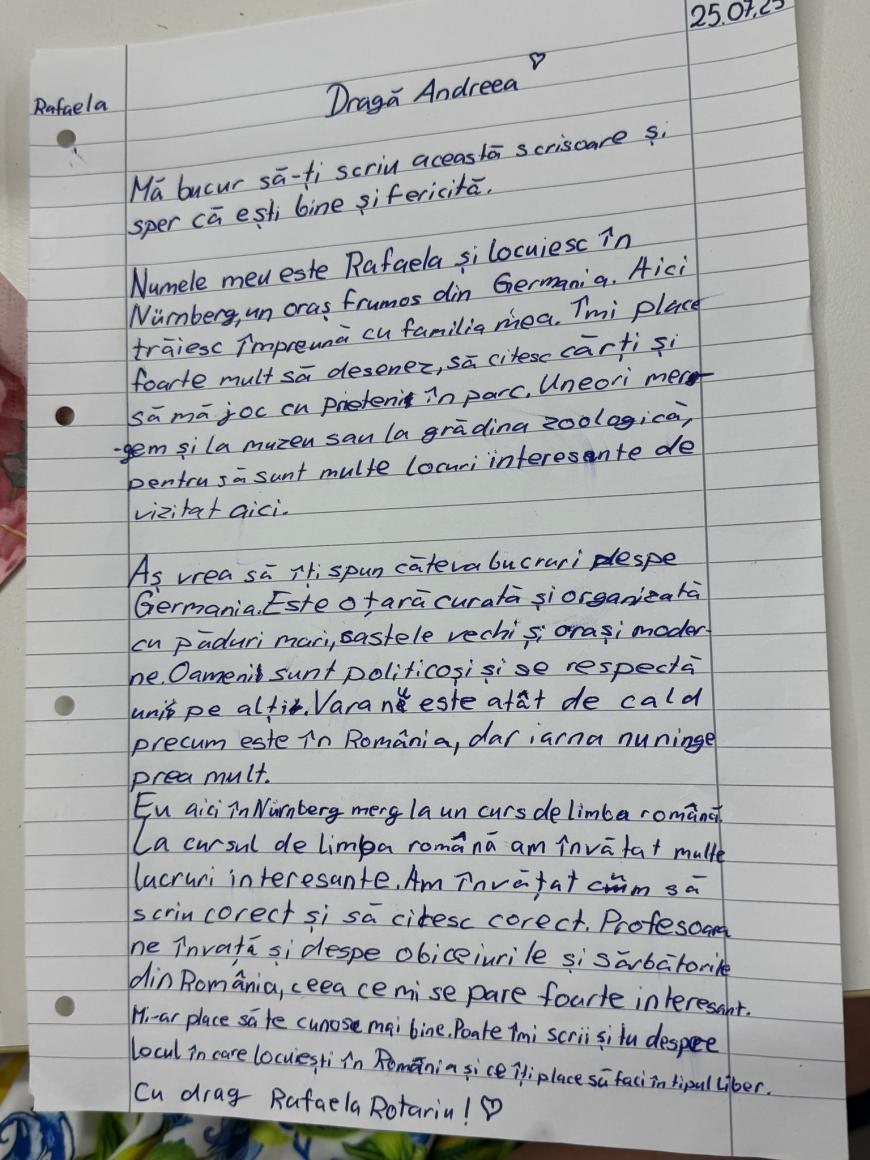 25.07.25
Rafaela
Dragă Andreea ♡
Mă bucur să-ți scriu această scrisoare și
sper că ești bine și fericită.
Numele meu este Rafaela și locuiesc în
Nürnberg, un oraș frumos din Germania. Aici
trăiesc împreună cu familia mea. Îmi place
foarte mult să desenez, să citesc cărți și
să mă joc cu prieteni în parc. Uneori mer-
-gem și la muzeu sau la grădina zoologică,
pentru să sunt multe locuri interesante de
vizitat aici.
Aș vrea să îți spun câteva bucruri despe
Germania. Este o țară curată și organizată
cu păduri mari, sastele vechi și orași moder-
ne. Oameni sunt politicoși și se respectă
unii pe alți. Vara nu este atât de cald
precum este în România, dar iarna nu ninge
prea mult.
Eu aici în Nürnberg merg la un curs de limba română.
La cursul de limba română am învățat multe
lucruri interesante. Am învățat cum să
scriu corect și să citesc corect. Profesoara
ne învață și despe obiceiurile și sărbătorile
din România, ceea ce mi se pare foarte interesant.
Mi-ar place să te cunosc mai bine. Poate îmi scrii și tu despre
locul în care locuiești în România și ce îți place să faci în tipul liber.
Cu drag Rafaela Rotariu! ♡